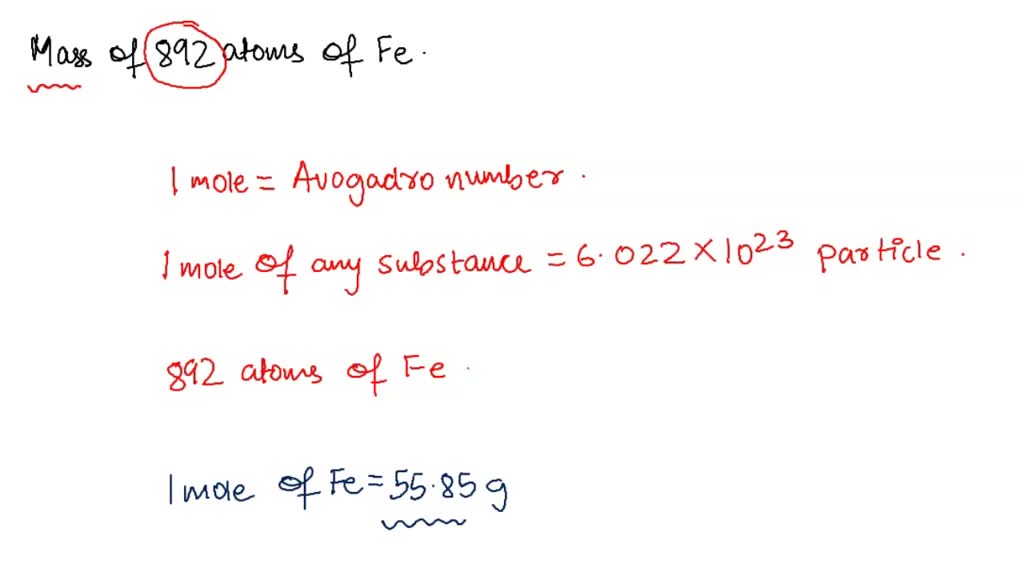 Mass of 892 atoms of Fe.
1 mole = Avogadro number.
1 mole of any substance = 6.022 × 10²³ particle.
892 atoms of Fe.
1 mole of Fe = 55.85 g